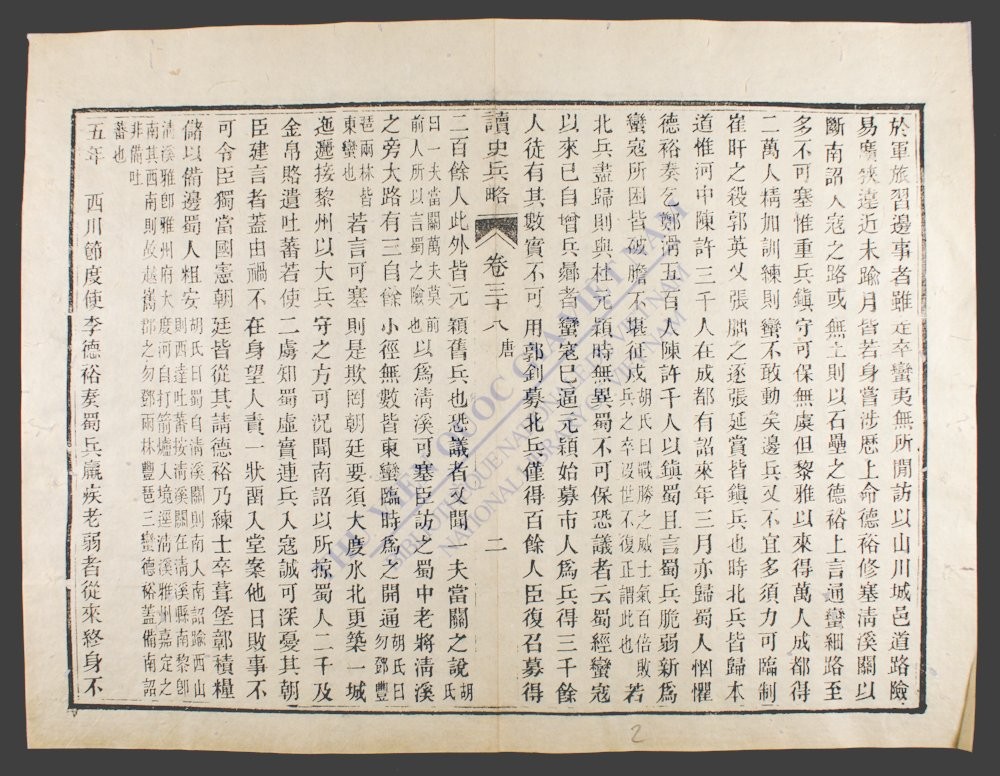 於軍旅習邊事者雖走卒蠻夷無所閒訪以山川城邑道路險
易廣狹遠近未踰月皆若身嘗涉歷上命德裕修塞淸溪關以
斷南詔入寇之路或無土則以石壘之德裕上言通蠻細路至
多不可塞惟重兵鎮守可保無虞但黎雅以來得萬人成都得
二萬人精加訓練則蠻不敢動矣邊兵又不宜多須力可臨制
崔旰之殺郭英乂張朏之逐張延賞皆鎮兵也時北兵皆歸本
道惟河中陳許三千人在成都有詔來年三月亦歸蜀人恟懼
德裕奏乞鄭滑五百人陳許千人以鎮蜀且言蜀兵脆弱新爲
蠻寇所困皆破膽不堪征戍胡氏曰戰勝之威士氣百倍敗兵之卒沒世不復正謂此也若
北兵盡歸則與杜元穎時無異蜀不可保恐議者云蜀經蠻寇
以來已自增兵曏者蠻寇已逼元穎始募市人爲兵得三千餘
人徒有其數實不可用郭釗募北兵僅得百餘人臣復召募得
讀史兵略 卷三十八 唐 二
二百餘人此外皆元穎舊兵也恐議者又聞一夫當關之說胡氏
曰一夫當關萬夫莫前前人所以言蜀之險也以爲淸溪可塞臣訪之蜀中老將淸溪
之旁大路有三自餘小徑無數皆東蠻臨時爲之開通胡氏曰勿鄧豐
琶兩林皆東蠻也若言可塞則是欺罔朝廷要須大度水北更築一城
迤邐接黎州以大兵守之方可況聞南詔以所掠蜀人二千及
金帛賂遺吐蕃若使二虜知蜀虛實連兵入寇誠可深憂其朝
臣建言者蓋由禍不在身望人責一狀留入堂案他日敗事不
可令臣獨當國憲朝廷皆從其請德裕乃練士卒葺堡鄣積糧
儲以備邊蜀人粗安胡氏曰蜀自淸溪關則南入南詔踰西山則西達吐蕃按淸溪關在淸溪縣南黎卽
淸溪雅卽雅州府大度河自打箭爐入境逕淸溪雅州嘉定之南其西南則故越嶲郡之勿鄧兩林豐琶三蠻德裕蓋備南詔
非備吐蕃也
五年 西川節度使李德裕奏蜀兵羸疾老弱者從來終身不
THƯ VIỆN QUỐC GIA VIỆT NAM
BIBLIOTHÈQUE NATIONALE DU VIETNAM
NATIONAL LIBRARY OF VIETNAM
2